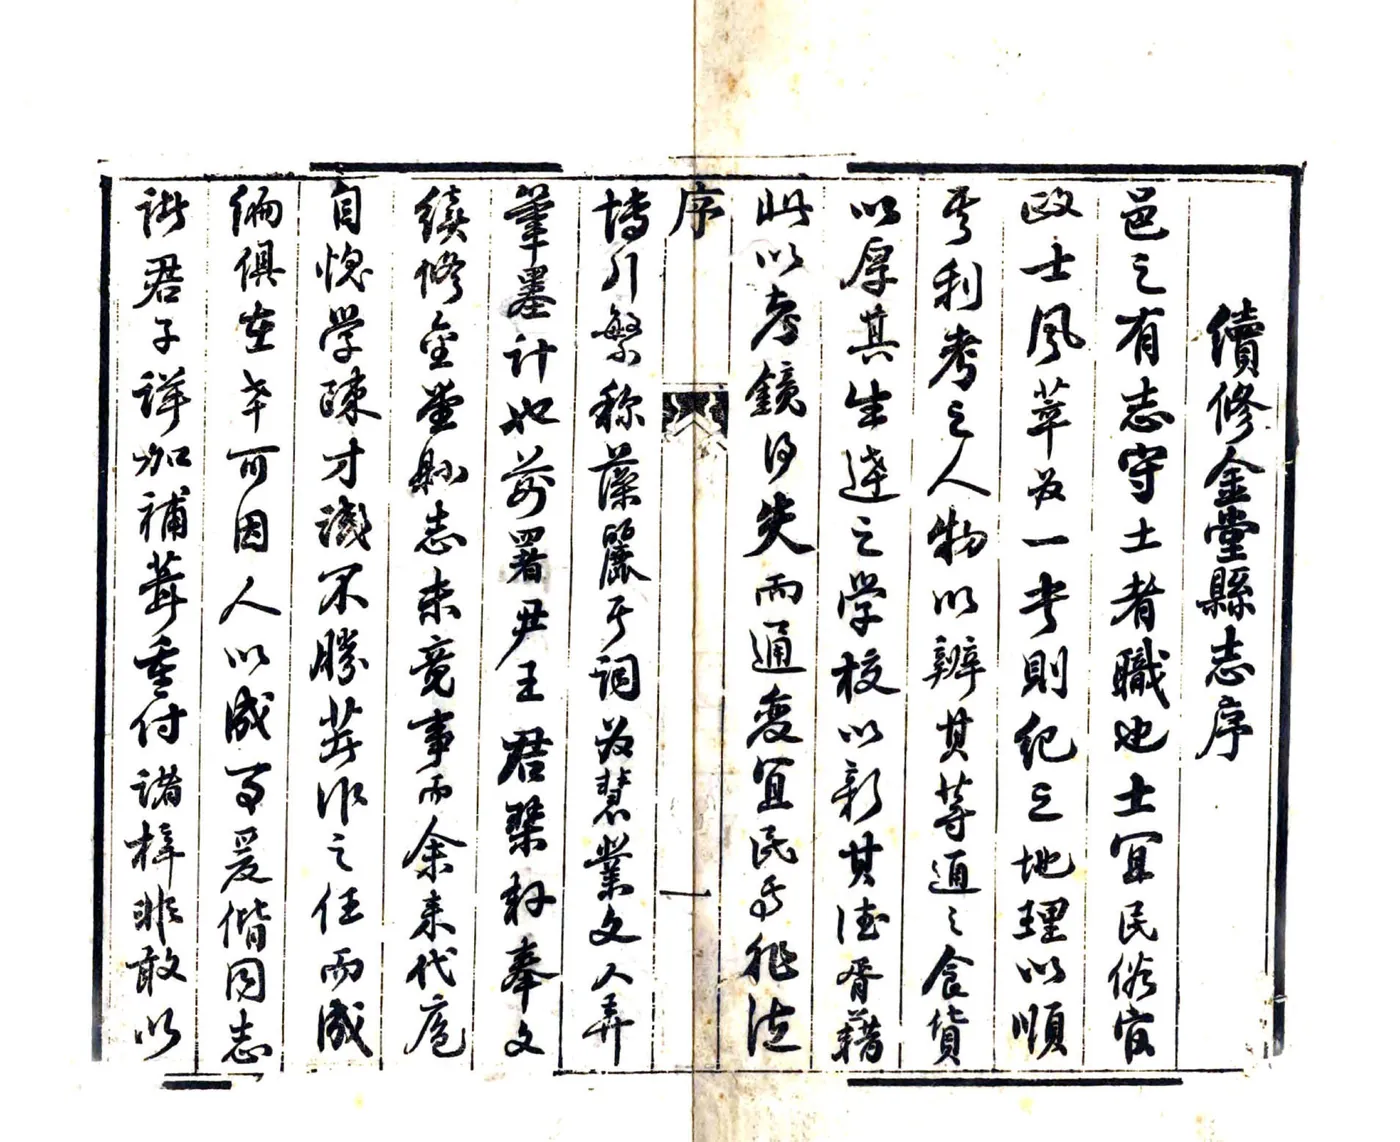 續修金堂縣志序
邑之有志守土者職也土宜民俗官
政士風萃於一书則纪之地理以順
其利考之人物以辨其等通之食貨
以厚其生達之学校以新其德胥藉
此以考鏡得失而通变宜民焉非徒
博引繁称藻麗于词为慧業文人弄
筆墨計也前署尹王君琹材奉文
續修金堂縣志未竟事而余来代庖
自愧学踈才謭不勝其作之任而成
編俱在幸可因人以成事爰偕同志
諸君子詳加補葺重付諸梓非敢以
序
一